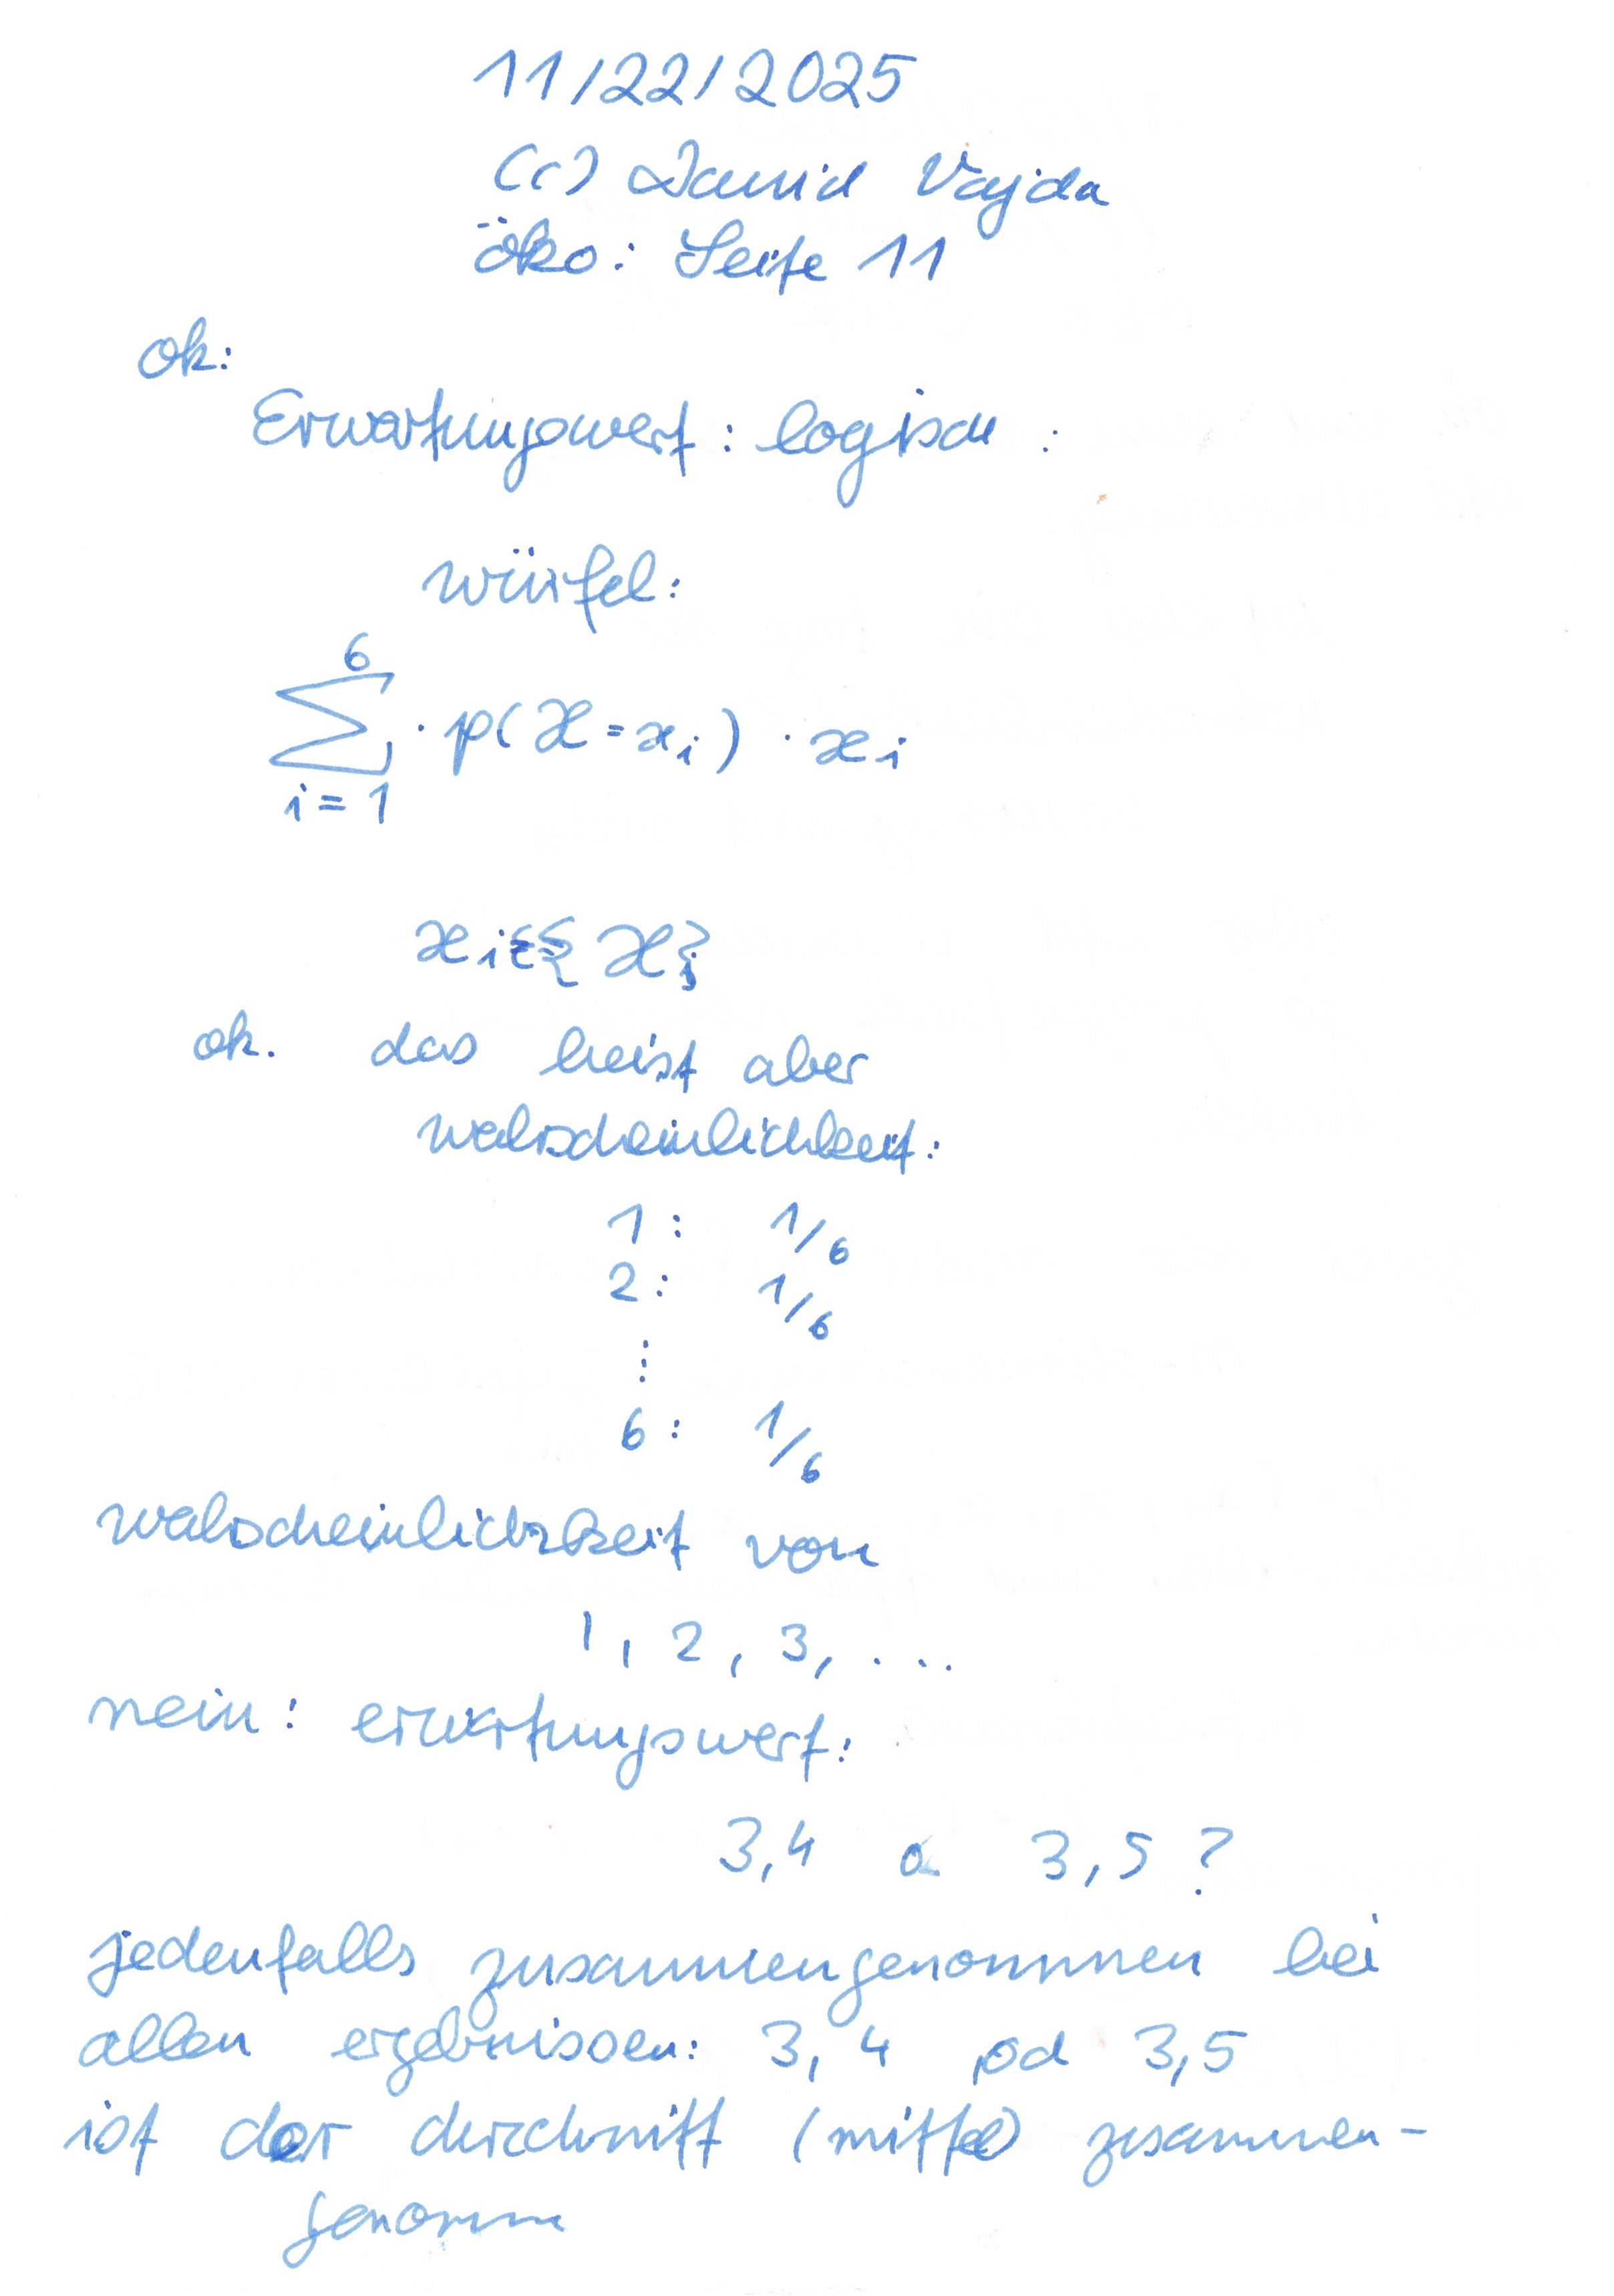 11/22/2025
(c) David Vajda
öko: Seite 11
ok:
Erwartungswert: logisch:
würfel:
6
∑ · p(X = xi) · xi
i = 1
xi ∈ { X }
ok. das heist aber
wahrscheinlichkeit:
1: 1/6
2: 1/6
⋮
6: 1/6
wahrscheinlichkeit von
1, 2, 3, ...
nein: erwartungswert:
3,4 o. 3,5?
jedenfalls zusammengenommen bei
allen ergebnissen: 3,4 od 3,5
ist der durchnitt (mittel) zusammen-
genomm